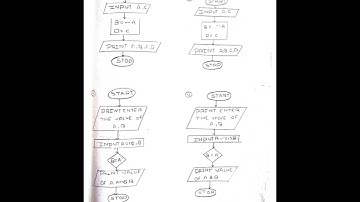 INPUT A.C
B<-A
D<-C
PRINT A,B,C,D
STOP
START
INPUT A.C
D<-C
PRINT A,B,C,D
STOP
START
PRINT ENTER
THE VALUE OF
A,B
B=A
PRINT VALUE
OF A AND B
STOP
START
PRINT ENTER
THE VALUE OF
A,B
B=A
PRINT VALUE
OF A & B
STOP